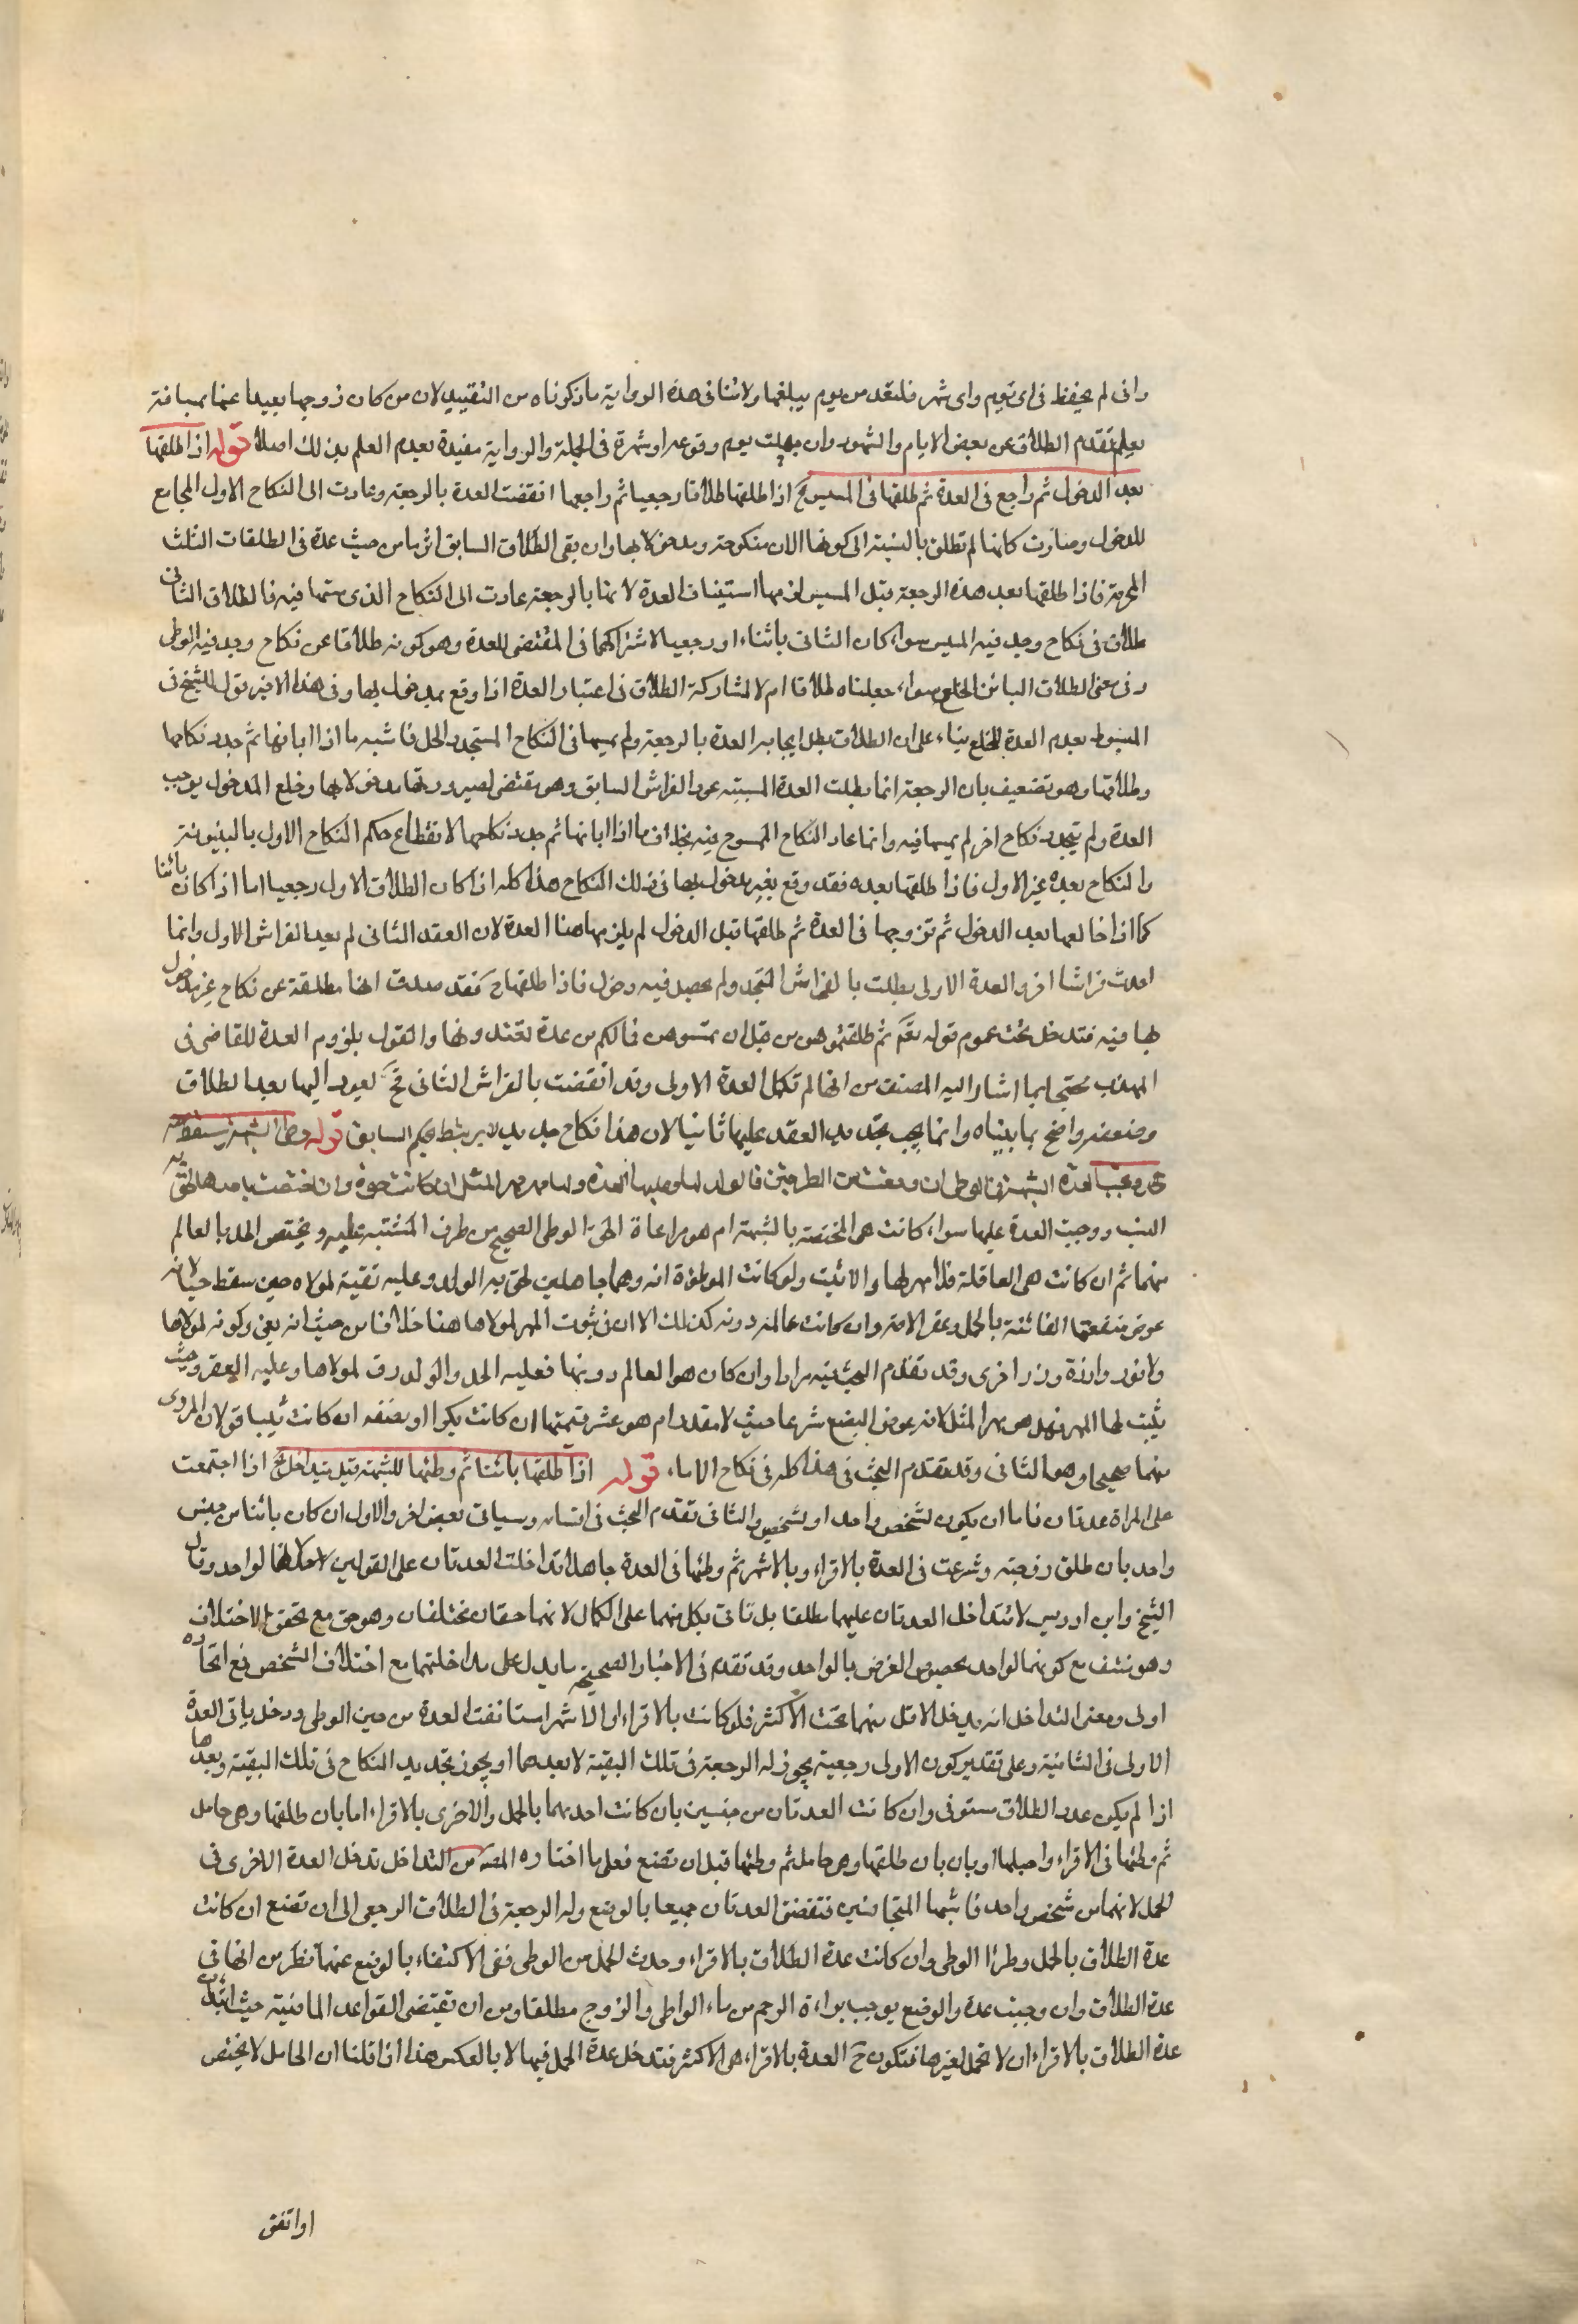 وان لم يحفظ فى اى يوم واى شهر فلتعتد من يوم يبلغها ولا تنافى هذه الرواية ما ذكرناه من التقييد لان من كان زوجها بعيدا عنها بمسافة
يعلم تقدم الطلاق عن بعض الايام والشهود وان جهلت يوم وقوعه او شهره فى الجملة والرواية مفيدة بعدم العلم بذلك اصلا قوله اذا طلقها
بعد الدخول ثم راجع فى العدة ثم طلقها قبل المسيس الخ اذا طلقها طلاقا رجعيا ثم راجعها انقضت العدة بالرجعة وعادت الى النكاح الاول المجامع
للدخول وصارت كانها لم تطلق بالنسبة الى كونها الان منكوحة ومدخولا بها وان بقى الطلاق السابق اثر ما من حيث عده فى الطلقات الثلث
المحرمة فاذا طلقها بعد هذه الرجعة قبل المسيس لزمها استيناف العدة لانها بالرجعة عادت الى النكاح الذى مسها فيه فالطلاق الثانى
طلاق فى نكاح وجد فيه المسيس سواء كان الثانى بائنا او رجعيا لاشتراكهما فى المقتضى للعدة وهو كونه طلاقا عن نكاح وجد فيه الوطى
وفى معنى الطلاق البائن الخلع سواء جعلناه طلاقا ام لا لمشاركته الطلاق فى اعتبار العدة اذا وقع بمدخول بها وفى هذا الاخير قول للشيخ فى
المبسوط بعدم العدة للخلع بناء على ان الطلاق بطل ايجابه العدة بالرجعة ولم يمسها فى النكاح المستجد والحل فاشبه ما اذا ابانها ثم جدد نكاحها
وطلاقها وهو تضعيف بان الرجعة انما بطلت العدة المسببة عود الفراش السابق وهو يقتضى لصيرورتها مدخولا بها وخلع المدخول يوجب
العدة ولم يتجدد نكاح اخر لم يمسها فيه وانما عاد النكاح الممسوح فيه بخلاف ما اذا ابانها ثم جدد نكاحها لانقطاع حكم النكاح الاول بالبينونة
والنكاح بعده غير الاول فاذا طلقها بعده فقد وقع بغير مدخول بها فى ذلك النكاح هذا كله اذا كان الطلاق الاول رجعيا اما اذا كان بائنا
كما اذا خالعها بعد الدخول ثم تزوجها فى العدة ثم طلقها قبل الدخول لم يلزمها هنا العدة لان العقد الثانى لم يعد الفراش الاول وانما
احدث فراشا اخر والعدة الاولى بطلت بالفراش المتجدد ولم يحصل فيه دخول فاذا طلقها ح فقد صدق انها مطلقة عن نكاح غير مدخول
بها فيه فتدخل تحت عموم قوله تعم ثم طلقتموهن من قبل ان تمسوهن فما لكم من عدة تعتدونها والقول بلزوم العدة للقاضى فى
المهذب محتجا بما اشار اليه المصنف من انها لم تكمل العدة الاولى وقد انقضت بالفراش الثانى فح تعود اليها بعد الطلاق
وضعفه واضح بما بيناه وانما يجب بتجديد العقد عليها ثانيا لان هذا نكاح جديد لا يرتبط بحكم السابق قوله وطى الشبهة يسقط معه
الحد وتجب العدة الشبهة فى الوطى ان وقعت من الطرفين فالولد لها وعليها العدة ولها مهر المثل ان كانت حرة وان اختصت باحدهما لحق به
النسب ووجبت العدة عليها سواء كانت هى المختصة بالشبهة ام هو مراعاة لحق الوطى الصحيح من طرف المشتبه عليه ويختص الحد بالعالم
منهما ثم ان كانت هى العاقلة فلا مهر لها والا ثبت ولو كانت الموطؤة امة وهما جاهلين لحق به الولد وعليه قيمته لمولاه حين سقط حيا لانه
عوض منفعتها الفائتة بالحمل وعقر الامة وان كانت عالمة دونه كذلك الا ان فى ثبوت المهر لمولاها هنا خلافا من حيث انه بغى وكونه لمولاها
ولا تزر وازرة وزر اخرى وقد تقدم البحث فيه مرارا وان كان هو العالم دونها فعليه الحد والولد رق لمولاها وعليه العقر وحيث
يثبت لها المهر فهل هو مهر المثل لانه عوض البضع شرعا حيث لا مقدر ام هو عشر قيمتها ان كانت بكرا او نصفه ان كانت ثيبا قولان المروى
منهما صحيحا وهو الثانى وقد تقدم البحث فى هذا كله فى نكاح الاماء قوله اذا طلقها بائنا ثم وطئها للشبهة قيل تتداخل الخ اذا اجتمعت
على المراة عدتان فاما ان يكون لشخص واحد او لشخصين والثانى تقدم البحث فى اقسامه وسياتى بعض اخر والاول ان كان بائنا من جنس
واحد بان طلق زوجته وشرعت فى العدة بالاقراء وبالاشهر ثم وطئها فى العدة جاهلا تداخلت العدتان على القولين لاحد لانها لواحد وقال
الشيخ وابن ادريس لا تتداخل العدتان عليهما مطلقا بل تاتى بكل منهما على الكمال لانهما حقان مختلفان وهو حق مع تحقق الاختلاف
وهو منتف مع كونهما لواحد بحصول الغرض بالواحد وقد تقدم فى الاخبار الصحيحة ما يدل على مداخلتهما مع اختلاف الشخص فمع اتحاده
اولى ومعنى التداخل انه يدخل الاقل منهما تحت الاكثر فلو كانت بالاقراء او الاشهر استانفت العدة من حين الوطى ودخل باقى العدة
الاولى فى الثانية وعلى تقدير كون الاولى رجعية يجوز له الرجعة فى تلك البقية لا بعدها ويجوز تجديد النكاح فى تلك البقية وبعدها
اذا لم يكن عدد الطلاق مستوفى وان كانت العدتان من جنسين بان كانت احديهما بالحمل والاخرى بالاقراء اما بان طلقها وهى حامل
ثم وطئها فى الاقراء واحبلها او بان بان طلقها وهى حامل ثم وطئها قبل ان تضع فعلى ما اختاره المصنف من التداخل تدخل العدة الاخرى فى
الحمل لانهما من شخص واحد فاشبها المتجانسين فتنقضى العدتان جميعا بالوضع وله الرجعة فى الطلاق الرجعى الى ان تضع ان كانت
عدة الطلاق بالحمل وطرا الوطى وان كانت عدة الطلاق بالاقراء وحدث الحمل من الوطى ففى الاكتفاء بالوضع عنهما نظر من انها فى
عدة الطلاق وان وجبت عدة والوضع يوجب براءة الرحم من ماء الواطى والزوج مطلقا ومن ان تقتضى القواعد الماضية حيث ابتدات
عدة الطلاق بالاقراء ان لا تحمل لغيرها فتكون ح العدة بالاقراء هى الاكثر فتدخل عدة الحمل فيها لا بالعكس هذا اذا قلنا ان الحامل لا يختص
او اتفق